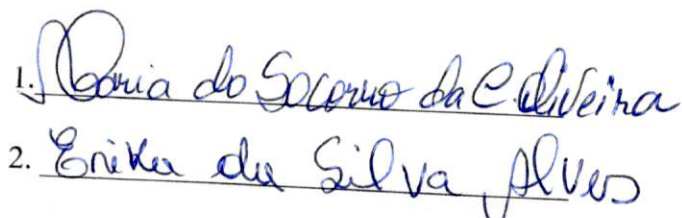 1. Maria do Socorro da C. Oliveira
2. Erika da Silva Alves